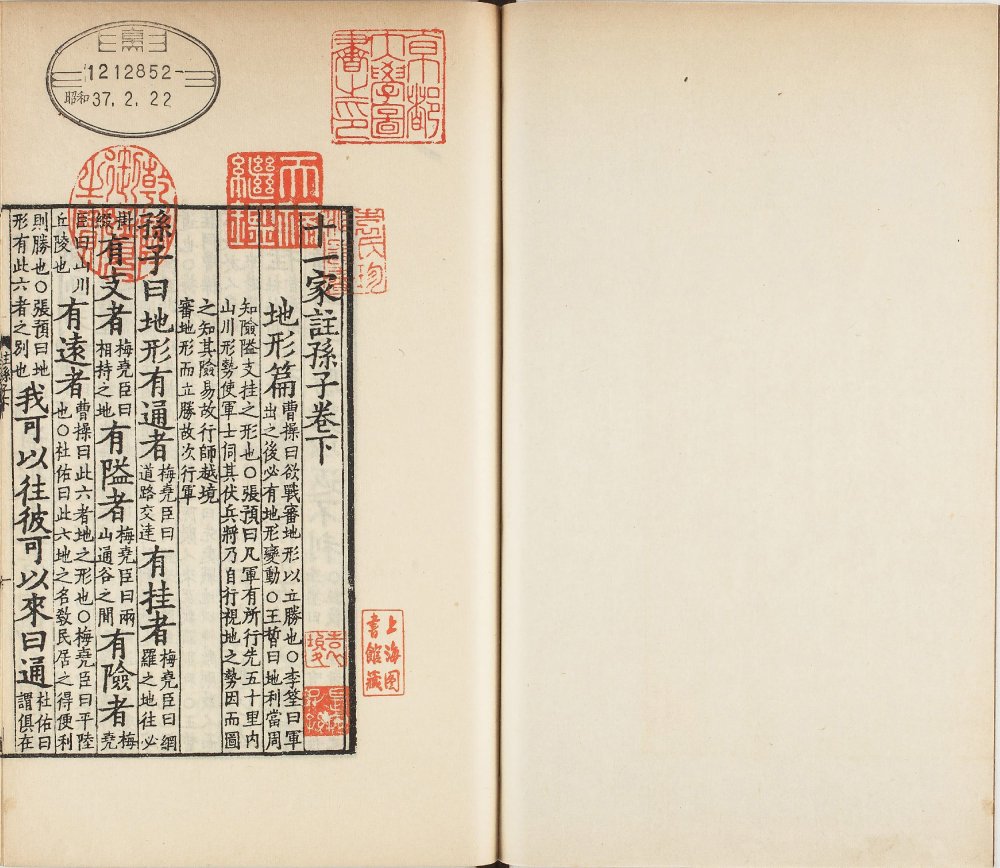 1212852
昭和37.2.22
京都
大學圖
書之印
乾隆御覽之寶
天祿
繼鑑
十一家註孫子卷下
地形篇曹操曰欲戰審地形以立勝也○李筌曰軍
出之後必有地形變動○王晳曰地利當周
知險隘支挂之形也○張預曰凡軍有所行先五十里內
山川形勢使軍士伺其伏兵將乃自行視地之勢因而圖
之知其險易故行師越境
審地形而立勝故次行軍
孫子曰地形有通者梅堯臣曰道路交達有挂者梅堯臣曰網羅之地往必
掛綴有支者梅堯臣曰相持之地有隘者梅堯臣曰兩山通谷之間有險者梅堯
臣曰山川丘陵也有遠者曹操曰此六者地之形也○梅堯臣曰平陸
也○杜佑曰此六地之名教民居之得便利
則勝也○張預曰地形有此六者之別也我可以往彼可以來曰通杜佑曰謂俱在
上海図
書館藏